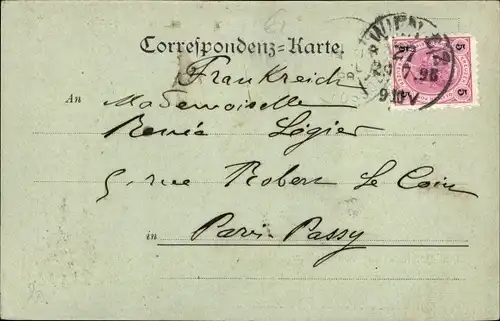 Correspondenz-Karte.
WIEN
5 5
5 5
Frankreich
An Mademoiselle
Renée Légier
5. rue Robert Le Coin
in Paris-Passy